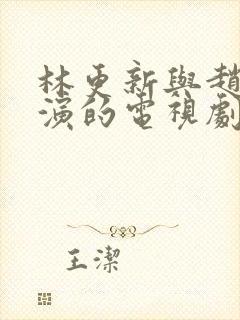 林更新與趙
演的電視劇
王潔